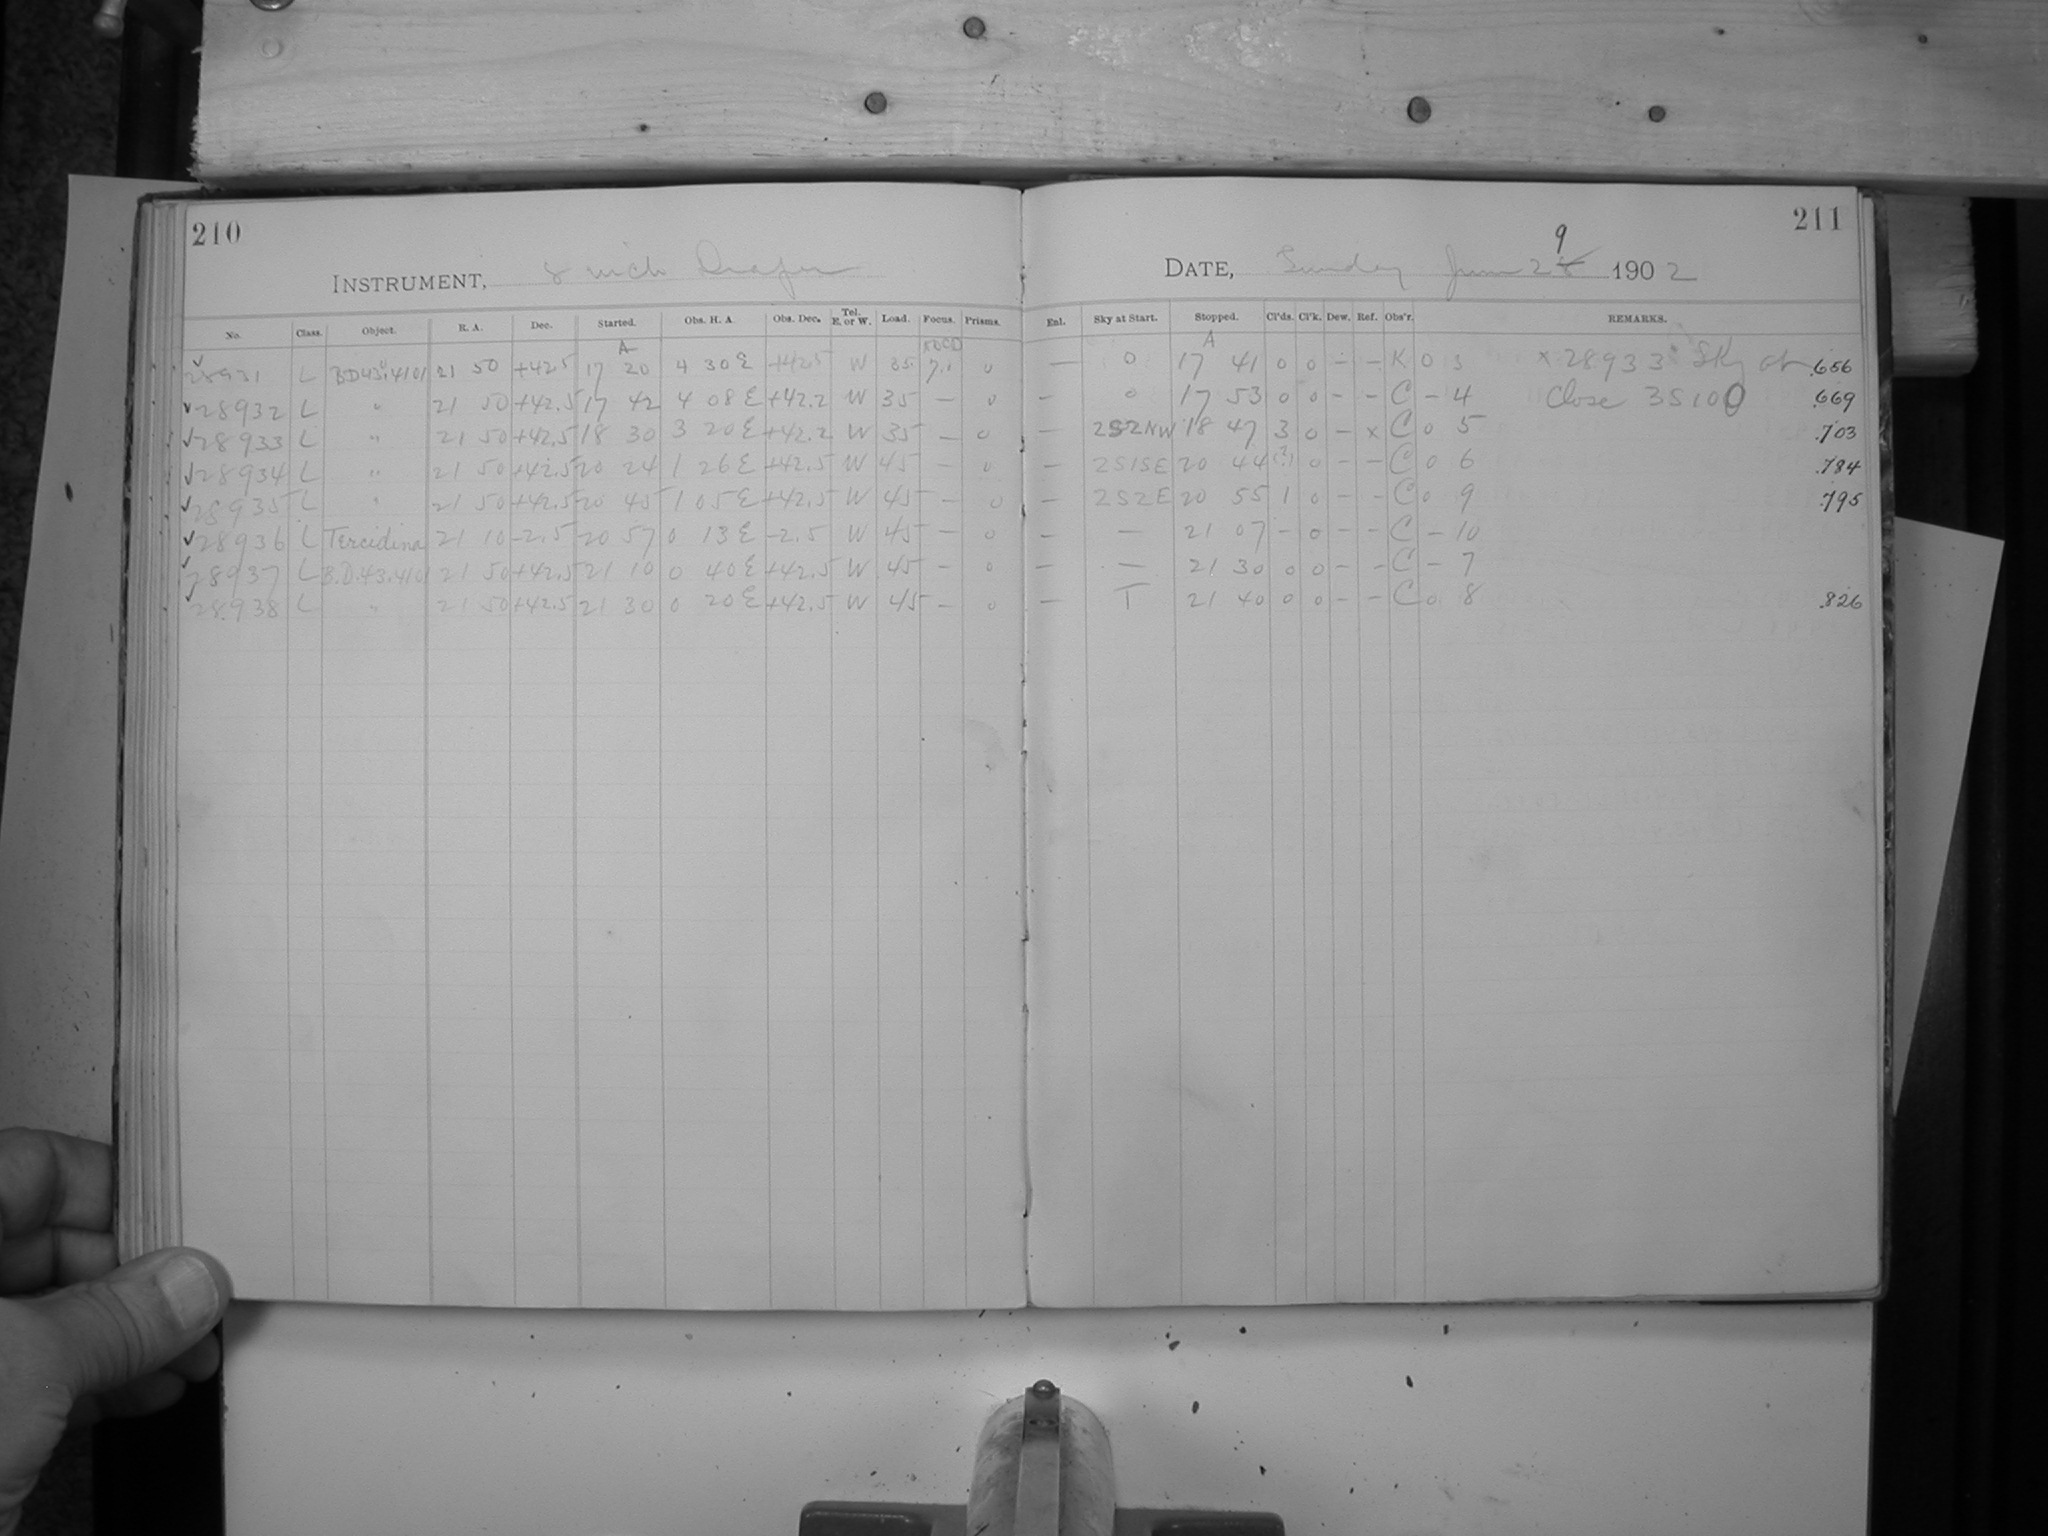 210
211
INSTRUMENT, 8 inch Draper
DATE, Sunday June 28 9 1902
No. Class. Object. R. A. Dec. Started. Obs. H. A. Obs. Dec. Tel. E. or W. Load. Focus. Prisms. Enl. Sky at Start. Stopped. Cl'ds. Cl'k. Dew. Ref. Obs'r. REMARKS.
✓ 28931 L B.D.43.4101 21 50 +42.5 A 17 20 4 30 E +42.5 W 35 7.1 0 — 0 A 17 41 0 0 – – K 0 3 × 28933 Sky at .656
✓ 28932 L " 21 50 +42.5 17 42 4 08 E +42.2 W 35 — 0 — 0 17 53 0 0 – – C – 4 Close 3S100 .669
✓ 28933 L " 21 50 +42.5 18 30 3 20 E +42.2 W 35 — 0 — 2S2NW 18 47 3 0 – × C 0 5 .703
✓ 28934 L " 21 50 +42.5 20 24 1 26 E +42.5 W 45 — 0 — 2S1SE 20 44 0 – – C 0 6 .784
✓ 28935 L " 21 50 +42.5 20 45 1 05 E +42.5 W 45 — 0 — 2S2E 20 55 1 0 – – C 0 9 .795
✓ 28936 L Tercidina 21 10 -2.5 20 57 0 13 E -2.5 W 45 — 0 — — 21 07 – 0 – – C – 10
✓ 28937 L B.D.43.4101 21 50 +42.5 21 10 0 40 E +42.5 W 45 — 0 — — 21 30 0 0 – – C – 7
✓ 28938 L " 21 50 +42.5 21 30 0 20 E +42.5 W 45 — 0 — T 21 40 0 0 – – C 0 8 .826